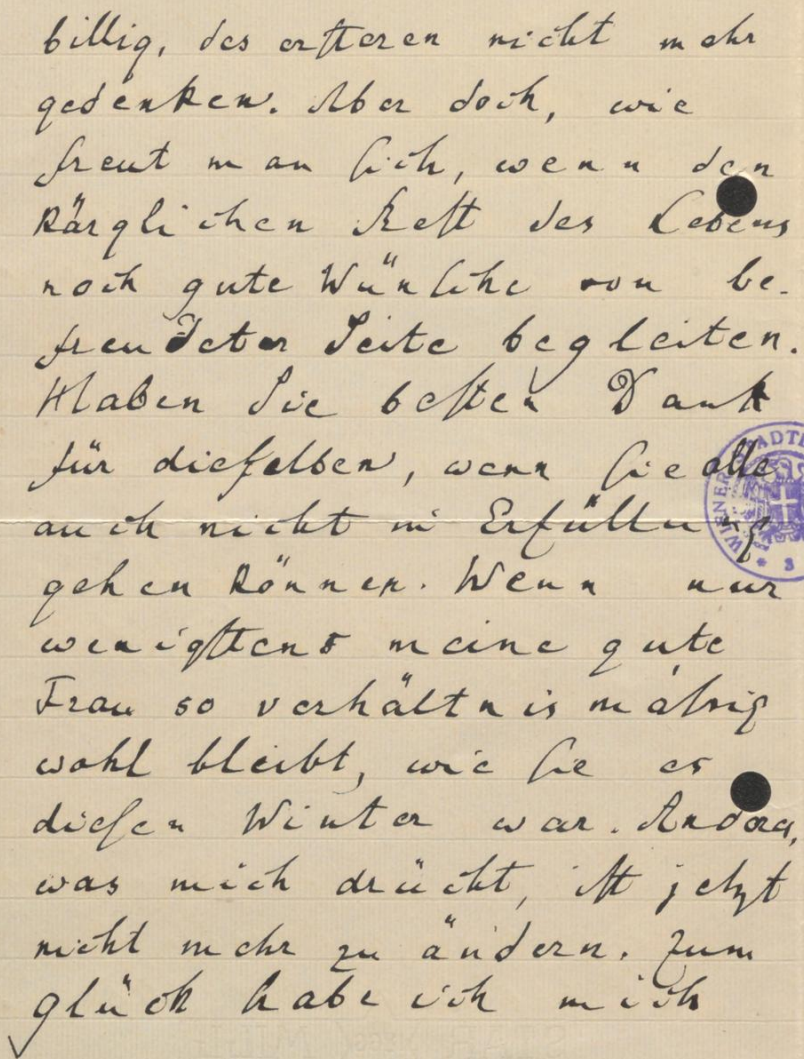 billig, des ersteren nicht mehr
gedenken. Aber doch, wie
freut man sich, wenn den
kärglichen Rest des Lebens
noch gute Wünsche von be-
freundeter Seite begleiten.
Haben Sie besten Dank
für dieselben, wenn sie alle
auch nicht in Erfüllung
gehen können. Wenn nur
wenigstens meine gute
Frau so verhältnismäßig
wohl bleibt, wie sie es
diesen Winter war. Andres,
was mich drückt, ist jetzt
nicht mehr zu ändern. Zum
glück habe ich mich
WIENER STADTB